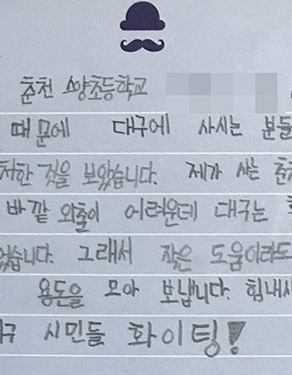 춘천 소양초등학교
때문에 대구에 사시는 분들
처한 것을 보았습니다. 제가 사는 춘
바깥 외출이 어려운데 대구는
었습니다. 그래서 작은 도움이라도
용돈을 모아 보냅니다. 힘내시
구 시민들 화이팅!